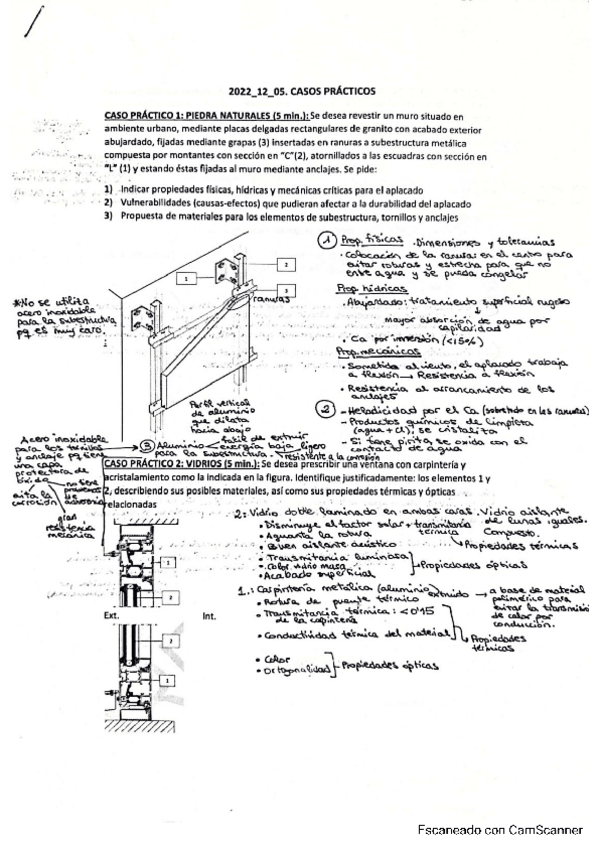 2022_12_05. CASOS PRÁCTICOS
CASO PRÁCTICO 1: PIEDRA NATURALES (5 min.): Se desea revestir un muro situado en
ambiente urbano, mediante placas delgadas rectangulares de granito con acabado exterior
abujardado, fijadas mediante grapas (3) insertadas en ranuras a subestructura metálica
compuesta por montantes con sección en "C"(2), atornillados a las escuadras con sección en
"L" (1) y estando éstas fijadas al muro mediante anclajes. Se pide:
1) Indicar propiedades físicas, hídricas y mecánicas críticas para el aplacado
2) Vulnerabilidades (causas-efectos) que pudieran afectar a la durabilidad del aplacado
3) Propuesta de materiales para los elementos de subestructura, tornillos y anclajes
1 Prop. físicas · Dimensiones y tolerancias
· Colocación de la ranura: en el centro para
evitar roturas y estrecha para que no
entre agua y se pueda congelar
Prop hídricas
· Abujardado: tratamiento superficial rugoso
↓
mayor absorción de agua por
capilaridad
· Ca por inmersión (<15%)
Prop. mecánicas
· Sometida al viento, el aplacado trabaja
a flexión → Resistencia a flexión
· Resistencia al arrancamiento de los
anclajes
2 - Heladicidad por el Ca (sobretodo en las ranuras)
- Productos químicos de limpieza
(agua + Cl), se cristaliza
- Si tiene pirita, se oxida con el
contacto de agua
1
2
3
ranuras
*No se utiliza
acero inoxidable
para la subestructura
pq es muy caro.
Perfil vertical
de aluminio
que dilata
hacia abajo
3 Aluminio - fácil de extruir
- energía baja ligero
para la subestructura - resistente a la corrosión
Acero inoxidable
para los tornillos
y anclaje pq tiene
una capa
protectora de
óxido
evita la
corrosión
no tiene
de
gran
resistencia
mecánica
CASO PRÁCTICO 2: VIDRIOS (5 min.): Se desea prescribir una ventana con carpintería y
acristalamiento como la indicada en la figura. Identifique justificadamente: los elementos 1 y
2, describiendo sus posibles materiales, así como sus propiedades térmicas y ópticas
relacionadas
2: Vidrio doble laminado en ambas caras. Vidrio aislante
de lunas iguales.
Compuesto.
• Disminuye el factor solar + transmitancia
térmica
• Aguanta la rotura
• Buen aislante acústico
Propiedades térmicas
• Transmitancia luminosa
• Color vidrio masa
• Acabado superficial
Propiedades ópticas
1: Carpintería metálica (aluminio) extruido → a base de material
polimérico para
evitar la transmisión
de calor por
conducción.
• Rotura de puente térmico
• Transmitancia térmica: <0'15
de la carpintería
• Conductividad térmica del material
Propiedades
térmicas
• Color
• Ortogonalidad
Propiedades ópticas
1
2
Ext.
Int.
2
1
Escaneado con CamScanner